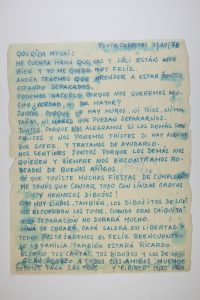 PUNTA CARRETAS, 7/10/78
QUERIDA MYLAI:
ME CUENTA MAMÁ QUE VOS Y LULI ESTÁN MUY
BIEN Y YO ME QUEDO MUY FELIZ.
AHORA TENEMOS QUE APRENDER A ESTAR JUNTOS
ESTANDO SEPARADOS.
PODEMOS HACERLO PORQUE NOS QUEREMOS MU-
CHO ¿VERDAD, MI HIJA MAYOR?
JUNTOS PORQUE NO HAY MUROS, NI RÍOS, NI MON-
TAÑAS, NI MARES QUE PUEDAN SEPARARNOS.
JUNTOS, PORQUE NOS ALEGRAMOS SI LOS DEMÁS SON
FELICES Y NOS PONEMOS TRISTES SI HAY ALGUIEN
QUE SUFRE. Y TRATAMOS DE AYUDARLO.
NOS SENTIMOS JUNTOS PORQUE LOS DEMÁS NOS
QUIEREN Y SIEMPRE NOS ENCONTRAMOS RO-
DEADOS DE BUENOS AMIGOS.
SÉ QUE TUVISTE MUCHAS FIESTAS DE CUMPLEAÑOS
ME TENÉS QUE CONTAR TODO CON LINDAS CARTAS
Y HERMOSOS DIBUJOS!
SON MUY LINDOS, TAMBIÉN, LOS DIBUJITOS DE LULI
ME RECUERDAN LOS TUYOS, CUANDO ERAS CHIQUITA
SEPARACIÓN NO DURARÁ MUCHO.
MAMÁ SE CURARÁ, PAPÁ SALDRÁ EN LIBERTAD Y
TODOS FESTEJAREMOS EL FELIZ REENCUENTRO
DE LA FAMILIA. TAMBIÉN ESTARÁ RICARDO.
ESPERO TUS CARTAS, TUS DIBUJOS Y LOS DE LULI
GRAN ABRAZO A TODOS LOS AMIGOS. MUCHOS
BESOTES PARA LAS DOS